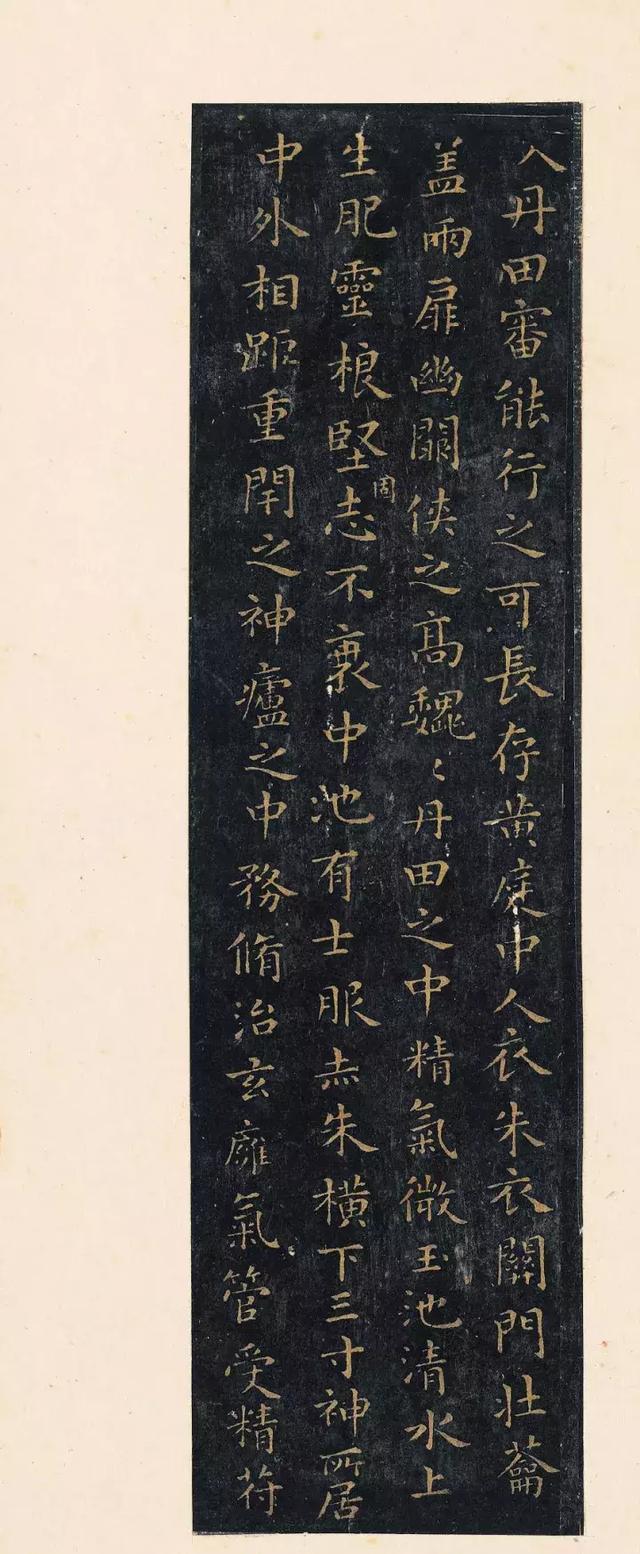 入丹田審能行之可長存黃庭中人衣朱衣關門壯蘥
盖兩扉幽關俠之高巍〻丹田之中精氣微玉池清水上
生肥靈根堅固志不衰中池有士服赤朱横下三寸神所居
中外相距重閇之神廬之中務脩治玄㢕氣管受精苻